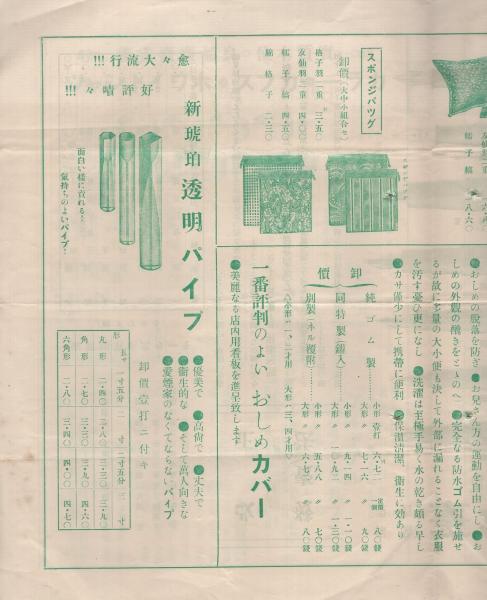 スポンジバッグ
卸價(大中小組合セ)
格子羽二重 三・五〇
友仙羽二重 四・〇〇
繻子縞 四・五〇
綿格子 二・三〇
繻子縞 八・六〇
●おしめの脱落を防ぎ●お兒さん方の運動を自由にし●お
しめの外觀の醜きをとゝのへ●完全なる防水ゴム引を施せ
るが故に多量の大小便も決して外部に漏れることなく衣服
を汚す憂ひ更になし●洗濯は至極手易く水の乾き頗る早し
●カサ僅少にして携帯に便利●保溫淸潔、衞生に効あり
卸價
純ゴム製 小形 壹打 六・七二 定價一個 八〇錢
大形 〃 七・一六 〃 九〇錢
同特製(紐入) 小形 〃 九・一四 〃 一・一〇
大形 〃 〃 一・三〇
別製ネル覆附 小形 〃 五・八八 〃 七〇錢
大形 〃 六・七二 〃 八〇錢
(小形 一、二才用 大形 三、四才用)
一番評判のよい おしめカバー
●美麗なる店内用看板を進呈致します
愈々大流行!!!
好評嘖々!!!
新琥珀 透明パイプ
面白い様に賣れる…
氣持ちのよいパイプ…
●優美で●高尚で●丈夫で
●衞生的な●そして萬人向きな
●愛煙家のなくてならないパイプ
卸價壹打ニ付キ
形 長サ 一寸五分 二寸 二寸五分 三寸
丸形 二・四〇 三・一〇 三・九〇
角形 二・七〇 三・三〇 四・六〇
六角形 二・八〇 三・四〇 四・〇〇 四・七〇